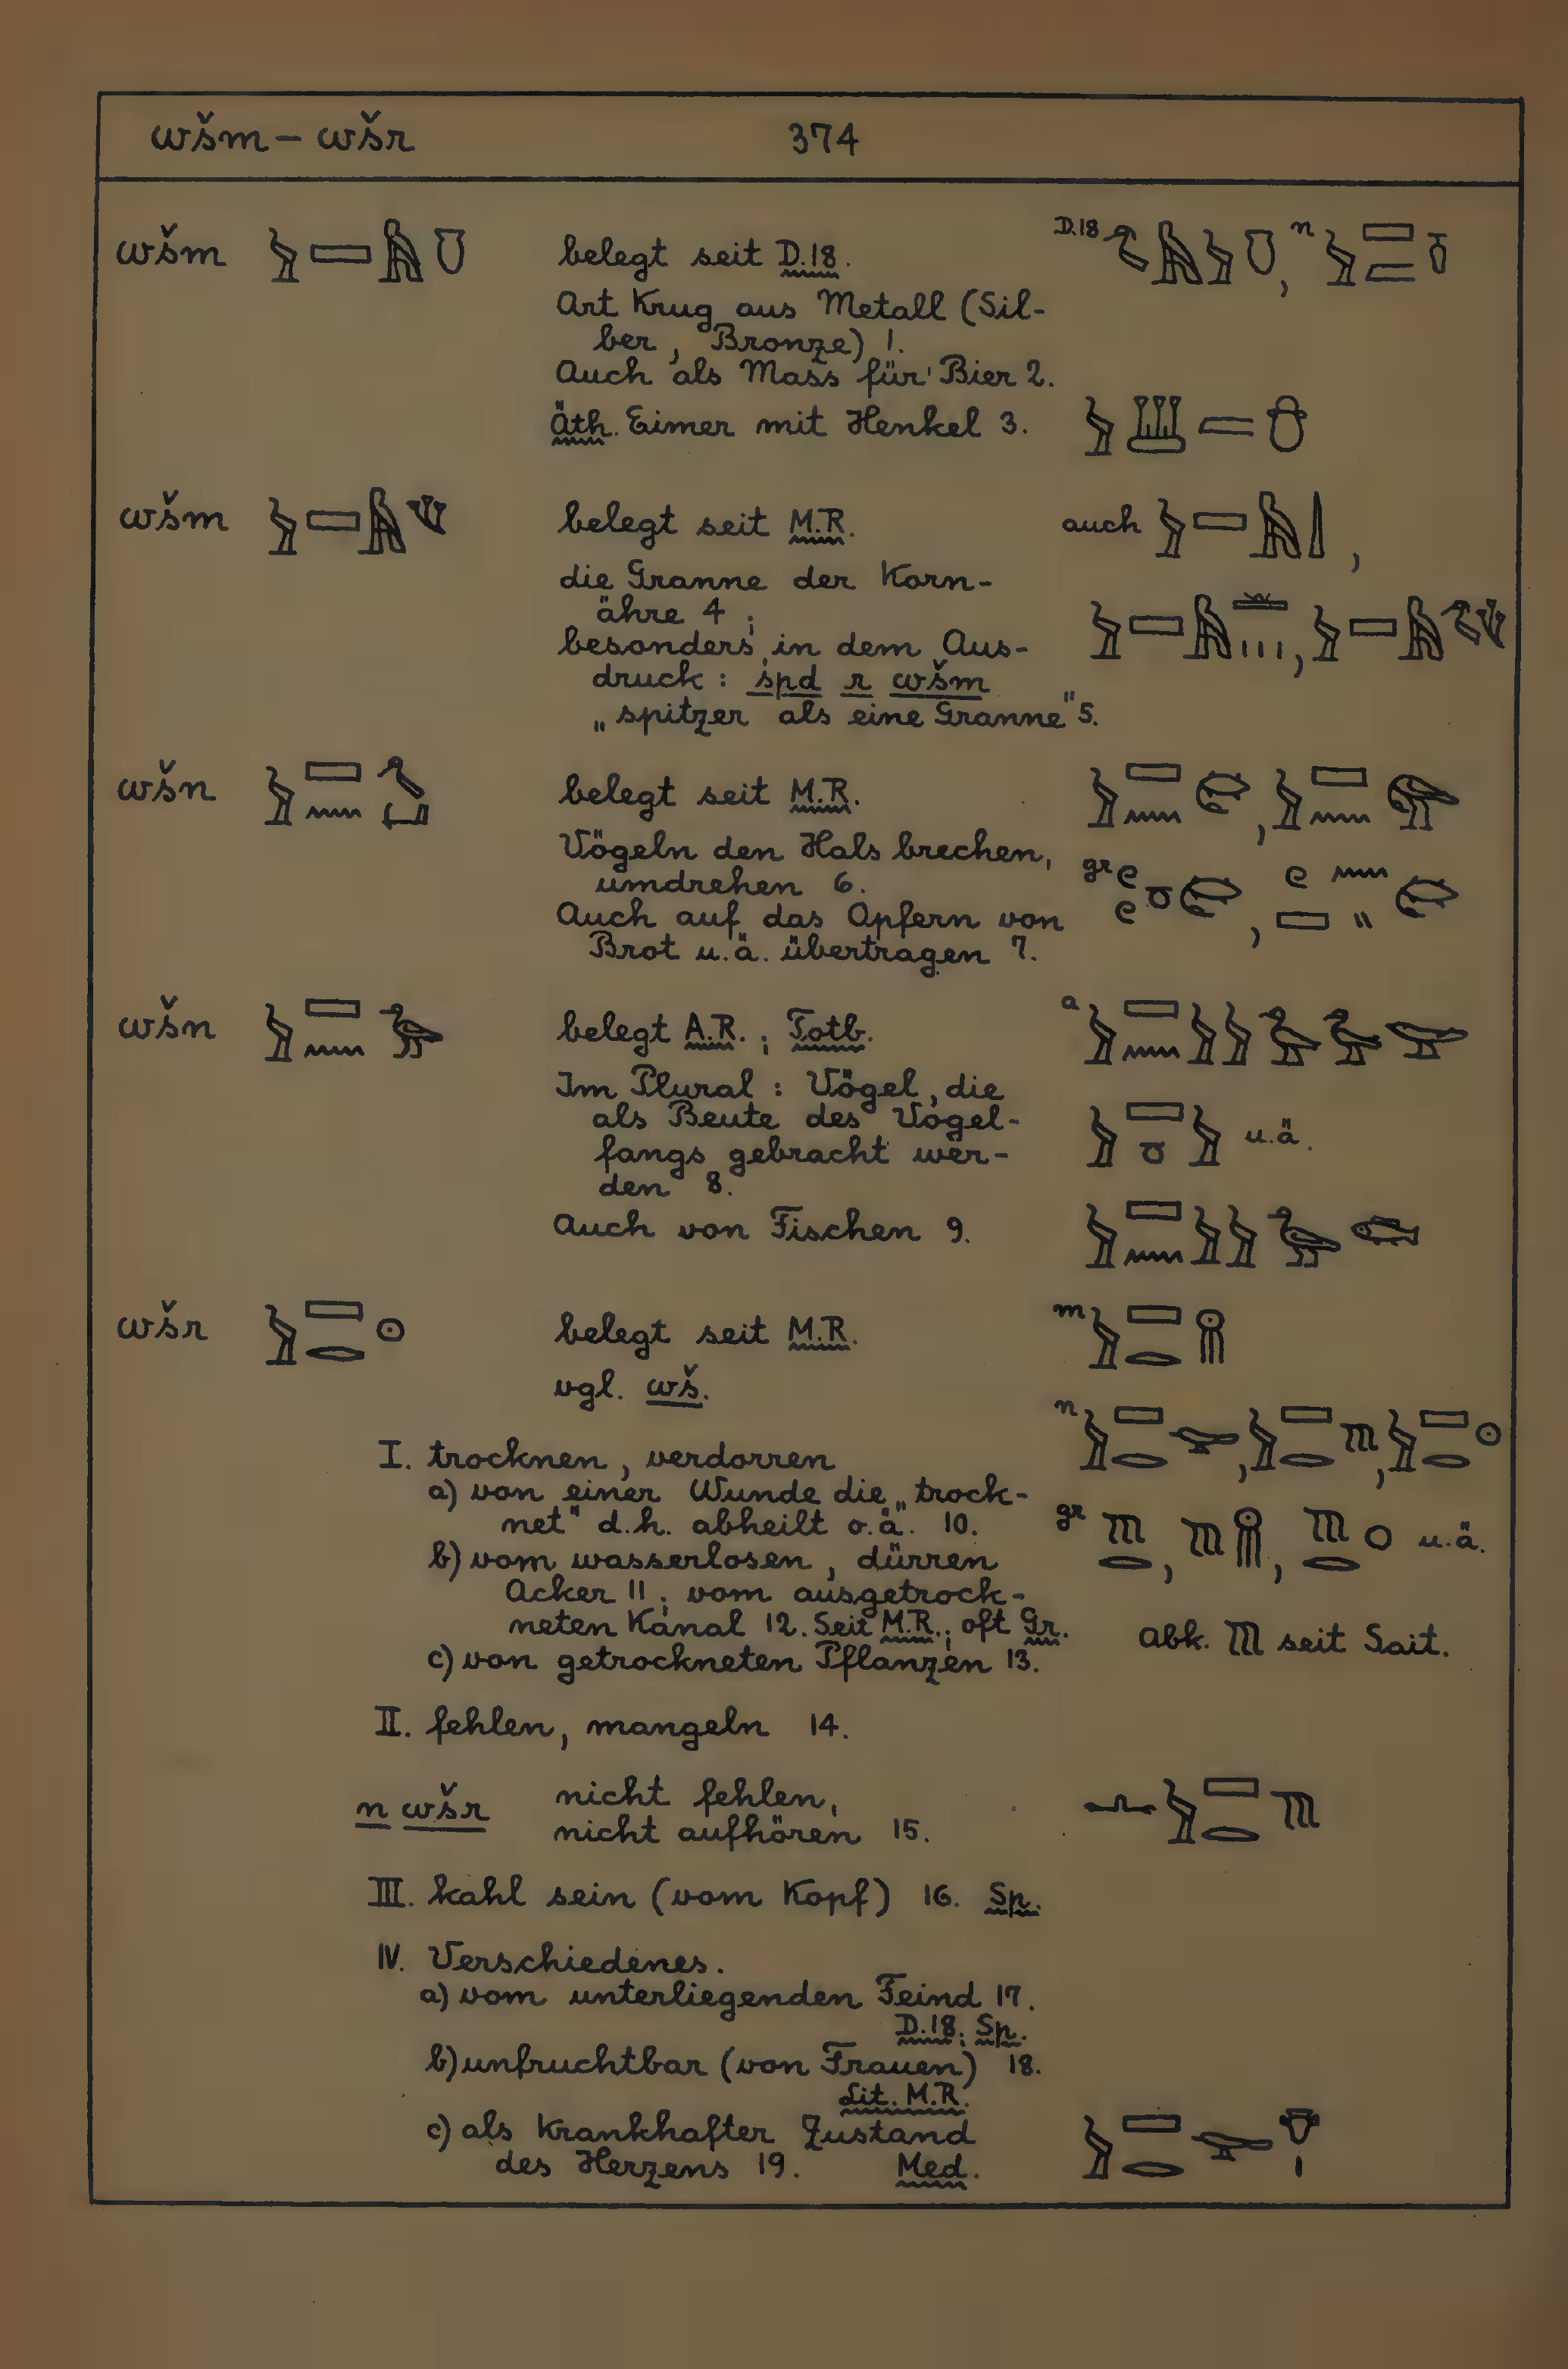 wšm – wšr 374
wšm belegt seit D.18. D.18 , n
Art Krug aus Metall (Sil-
ber, Bronze) 1.
Auch als Mass für Bier 2.
äth. Eimer mit Henkel 3.
wšm belegt seit M.R. auch ,
die Granne der Korn-
ähre 4 ;
besonders in dem Aus-
druck : spd r wšm
„spitzer als eine Granne" 5.
wšn belegt seit M.R.
Vögeln den Hals brechen,
umdrehen 6. gr
Auch auf das Opfern von
Brot u.ä. übertragen 7.
wšn belegt A.R. ; Totb. a
Im Plural : Vögel, die
als Beute des Vogel- u.ä.
fangs gebracht wer-
den 8.
Auch von Fischen 9.
wšr belegt seit M.R. m
vgl. wš.
n
I. trocknen, verdorren
a) von einer Wunde die „trock-
net" d.h. abheilt o.ä. 10. gr u.ä.
b) vom wasserlosen, dürren
Acker 11 ; vom ausgetrock-
neten Kanal 12. Seit M.R. ; oft Gr. Abk. seit Sait.
c) von getrockneten Pflanzen 13.
II. fehlen, mangeln 14.
n wšr nicht fehlen,
nicht aufhören 15.
III. kahl sein (vom Kopf) 16. Sp.
IV. Verschiedenes.
a) vom unterliegenden Feind 17.
D.18; Sp.
b) unfruchtbar (von Frauen) 18.
Lit. M.R.
c) als krankhafter Zustand
des Herzens 19. Med.